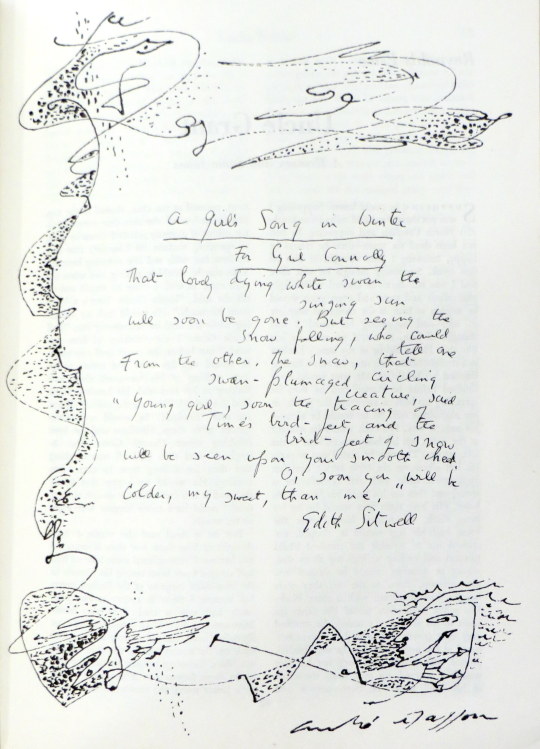 A Girl's Song in Winter
For Cyril Connolly
That lovely dying white swan the
singing sun
will soon be gone. But seeing the
snow falling, who could
tell one
From the other. The snow, that
swan-plumaged circling
creature, said
"Young girl, soon the tracing of
Time's bird-feet and the
bird-feet of snow
will be seen upon your smooth cheek.
O, soon you will be
Colder, my sweet, than me."
Edith Sitwell
andré Masson